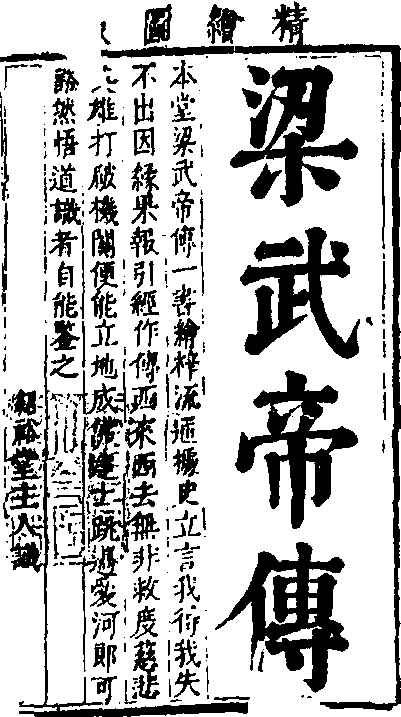 精繪圖
梁武帝傳
本堂梁武帝傳一書繪梓流通據史立言我得我失
不出因緣果報引經作傳西來西去無非救度慈悲
雄打破機關便能立地成佛達士跳過愛河即可
豁然悟道識者自能鑒之
紹裕堂主人識